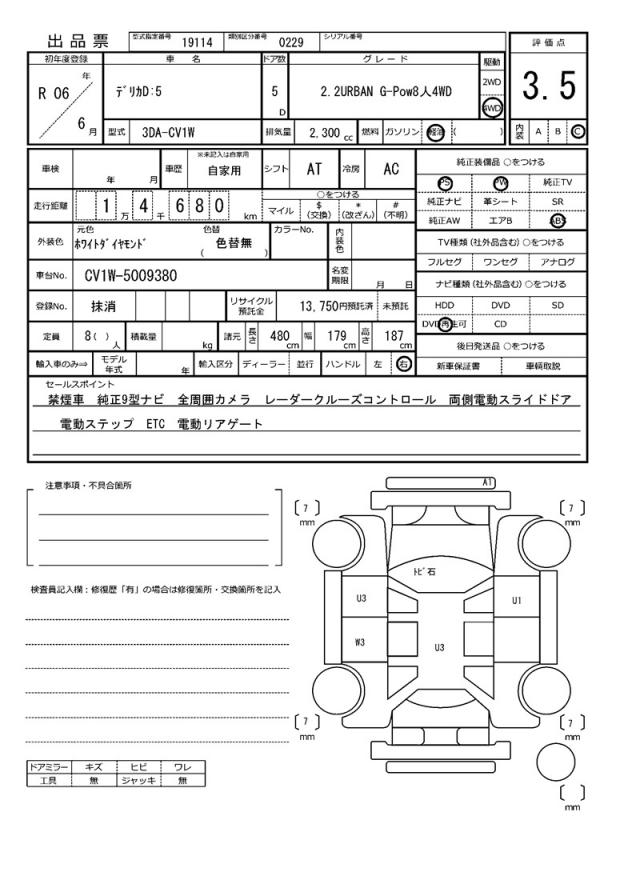 出品票 型式指定番号 19114 類別区分番号 0229 シリアル番号
評価点
3.5
内装 A B C
初年度登録 車名 ドア数 グレード 駆動
R 06 年 6 月
ﾃﾞﾘｶD:5 5 D 2.2URBAN G-Pow8人4WD 2WD 4WD
型式 3DA-CV1W 排気量 2,300 cc 燃料 ガソリン 軽油 ( )
車検 年 月 車歴 ※未記入は自家用 自家用 シフト AT 冷房 AC
走行距離 1 万 4 千 6 8 0 km
○をつける
マイル $(交換) *(改ざん) #(不明)
外装色 元色 ﾎﾜｲﾄﾀﾞｲﾔﾓﾝﾄﾞ 色替 ( 色替無 ) カラーNo. 内装色
車台No. CV1W-5009380 名変期限 月 日
登録No. 抹消 リサイクル預託金 13,750円預託済 未預託
定員 8( ) 人 積載量 kg 諸元 長さ 480 cm 幅 179 cm 高さ 187 cm
輸入車のみ⇒ モデル年式 年 輸入区分 ディーラー 並行 ハンドル 左 右
純正装備品 ○をつける
PS PW 純正TV
純正ナビ 革シート SR
純正AW エアB ABS
TV種類(社外品含む)○をつける
フルセグ ワンセグ アナログ
ナビ種類(社外品含む)○をつける
HDD DVD SD
DVD再生可 CD
後日発送品 ○をつける
新車保証書 車輌取説
セールスポイント
禁煙車 純正9型ナビ 全周囲カメラ レーダークルーズコントロール 両側電動スライドドア
電動ステップ ETC 電動リアゲート
注意事項・不具合箇所
検査員記入欄：修復歴「有」の場合は修復箇所・交換箇所を記入
ドアミラー キズ ヒビ ワレ
工具 無 ジャッキ 無
A1
7 mm
7 mm
ﾄﾋﾞ石
U3
U1
W3
U3
7 mm
7 mm
mm